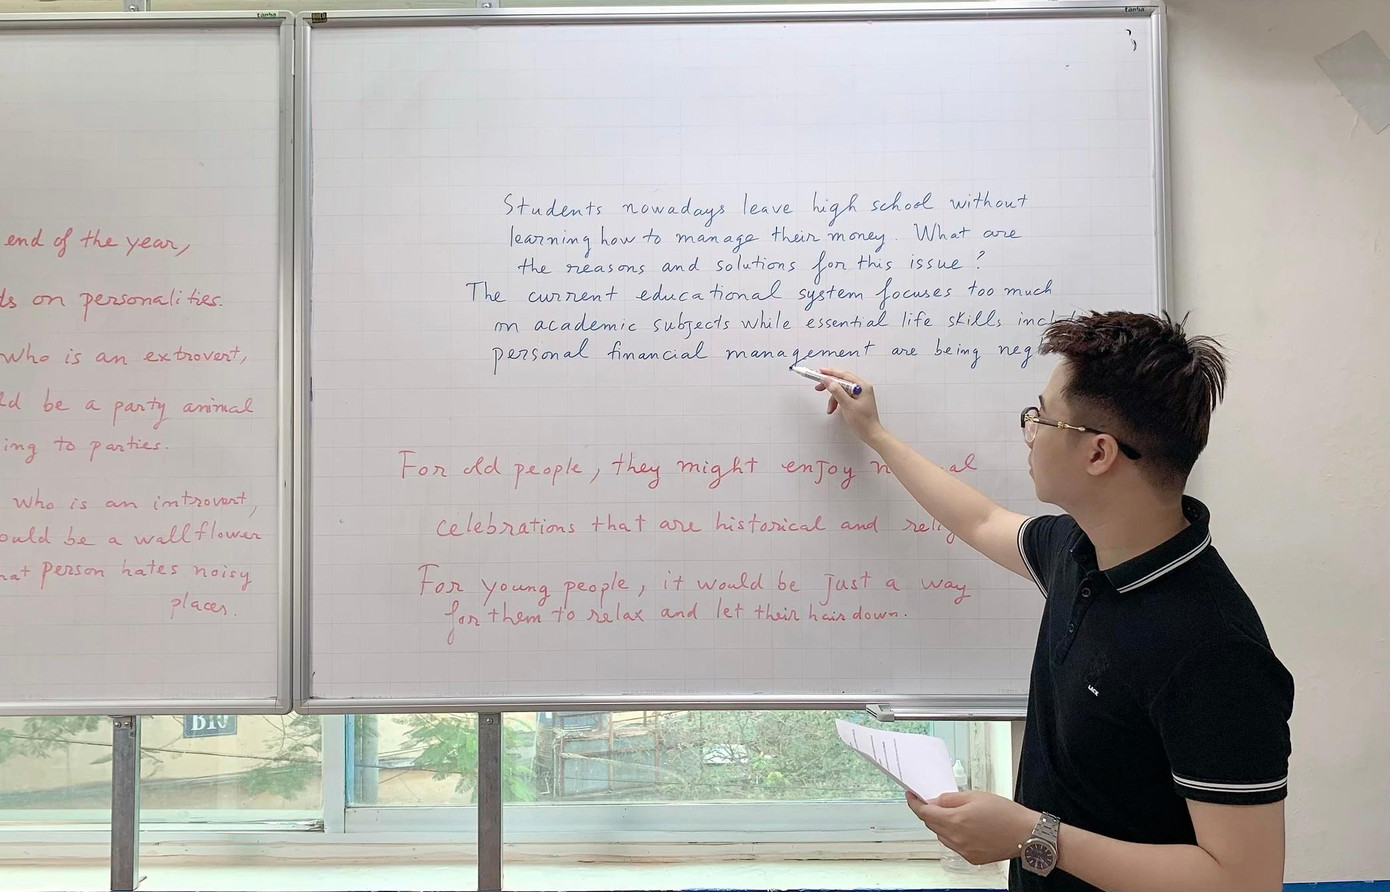 end of the year,
on personalities.
who is an extrovert,
be a party animal
to parties.
who is an introvert,
be a wallflower
person hates noisy
places.
Students nowadays leave high school without
learning how to manage their money. What are
the reasons and solutions for this issue?
The current educational system focuses too much
on academic subjects while essential life skills
personal financial management are being
For old people, they might enjoy
celebrations that are historical and
For young people, it would be just a way
for them to relax and let their hair down.
B10